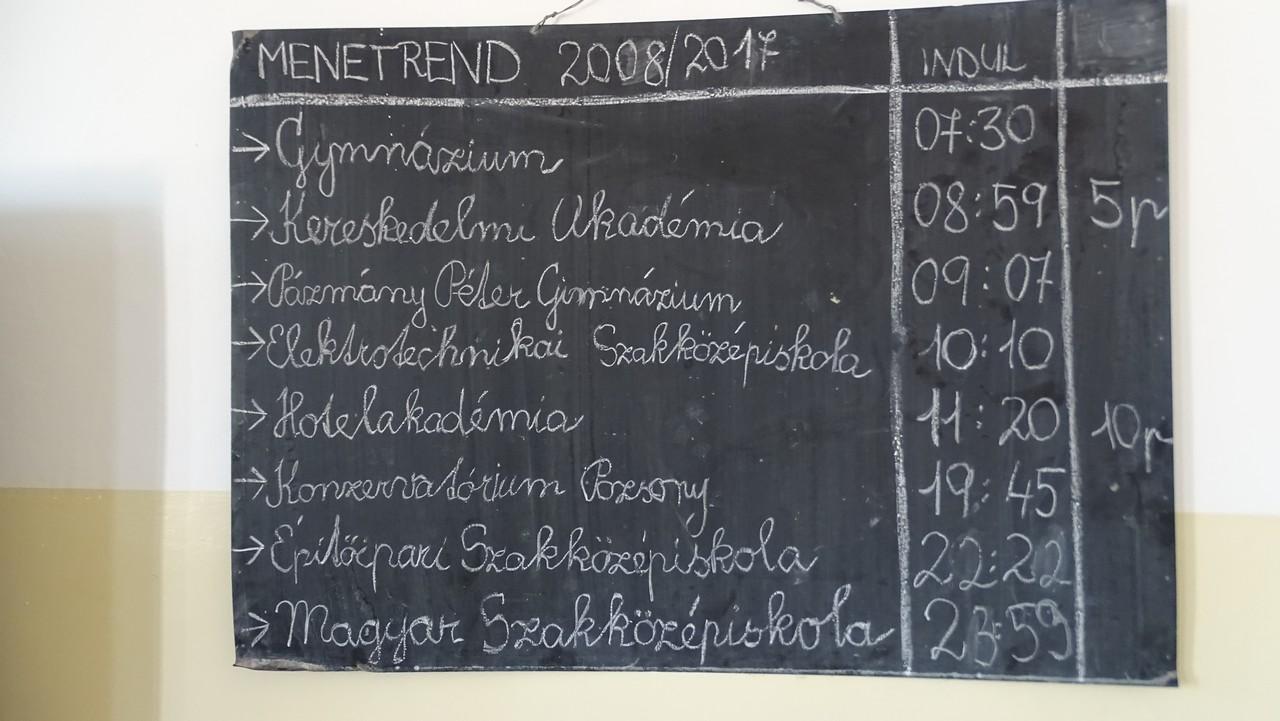 MENETREND 2008/2017 INDUL
→ Gymnázium 07:30
→ Kereskedelmi Akadémia 08:59 5p
→ Pázmány Péter Gimnázium 09:07
→ Elektrotechnikai Szakközépiskola 10:10
→ Hotelakadémia 11:20 10p
→ Konzervatórium Pozsony 19:45
→ Építőipari Szakközépiskola 22:22
→ Magyar Szakközépiskola 23:59